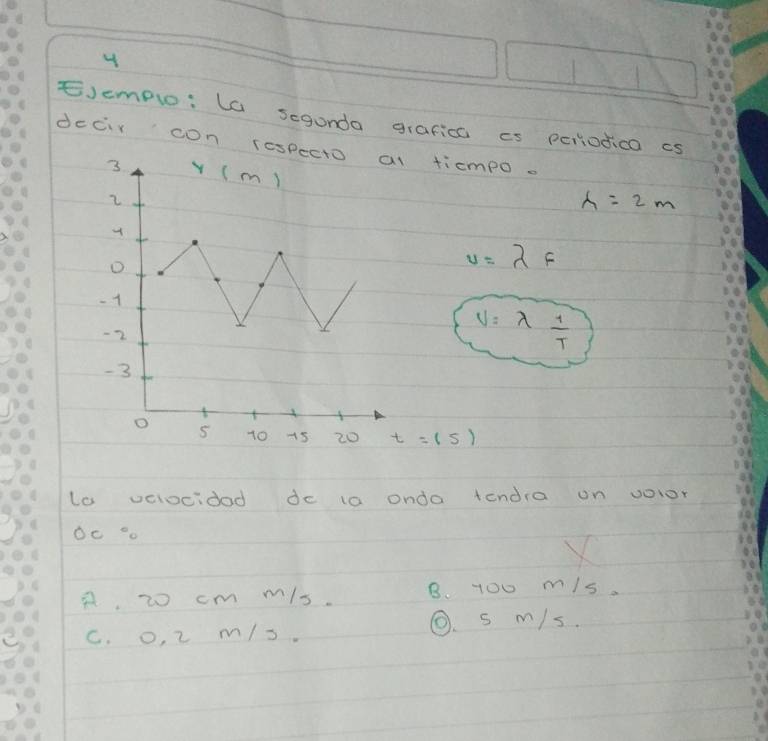 4
Ejemplo: La segunda grafica es periodica es
decir con respecto al tiempo.
3 Y (m)
2
λ = 2 m
1
v = λ F
0
-1
V = λ 1/T
-2
-3
0 5 10 15 20 t = (s)
La velocidad de la onda tendra un valor
de:
A. 20 cm m/s. B. 100 m/s.
C. 0,2 m/s. D. 5 m/s.